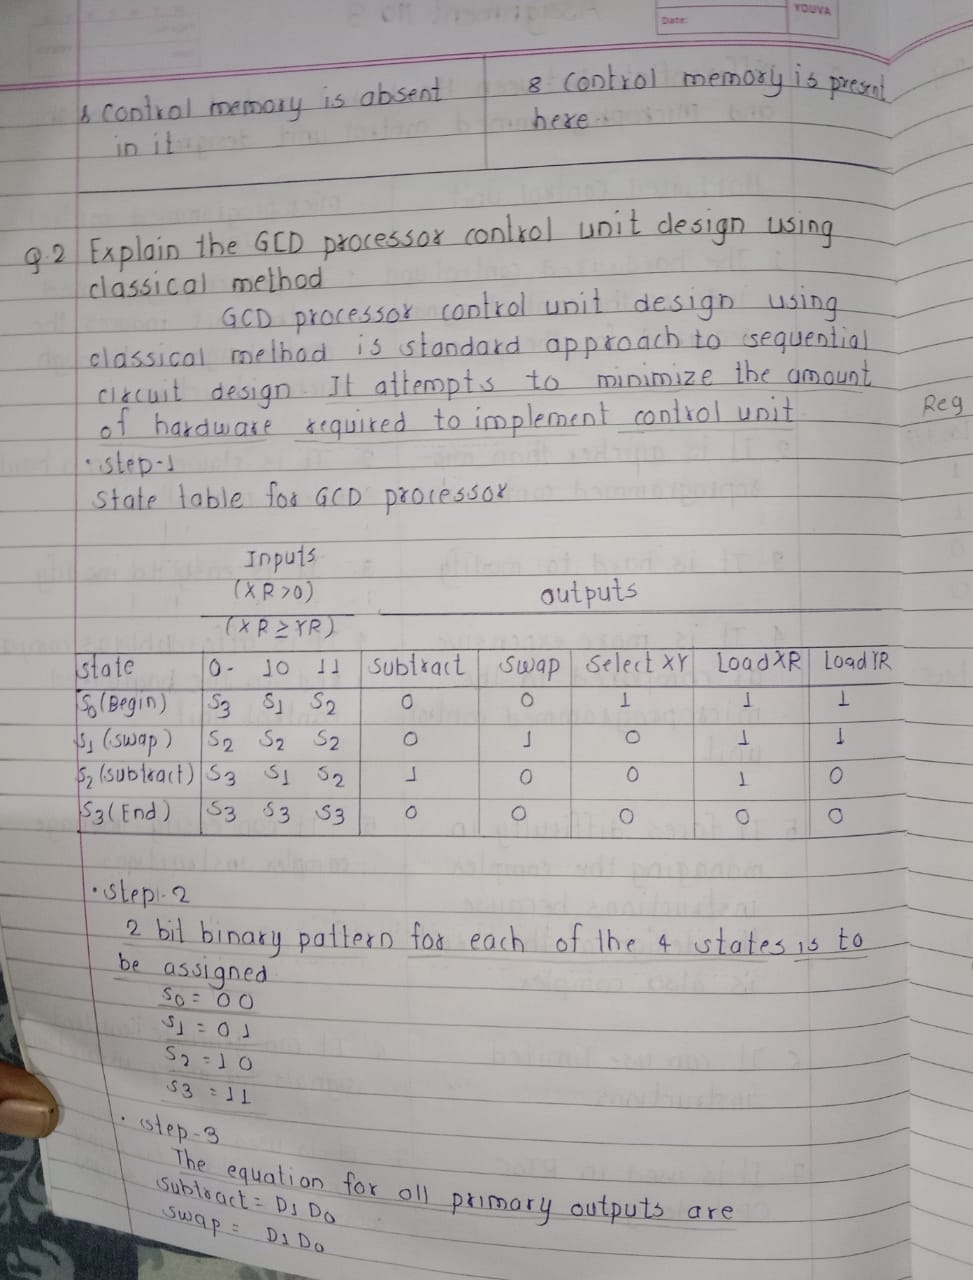 YOUVA
Date:
8 control memory is absent
in it
8 control memory is present
here.
Q.2 Explain the GCD processor control unit design using
classical method
GCD processor control unit design using
classical method is standard approach to sequential
circuit design. It attempts to minimize the amount
of hardware required to implement control unit
Reg
• step-1
State table for GCD processor
Inputs
(XR>0)
(XR≥YR)
outputs
state 0- 10 11 subtract swap select XY Load XR Load YR
S0 (Begin) S3 S1 S2 0 0 1 1 1
S1 (swap) S2 S2 S2 0 1 0 1 1
S2 (subtract) S3 S1 S2 1 0 0 1 0
S3 (End) S3 S3 S3 0 0 0 0 0
• step-2
2 bit binary pattern for each of the 4 states is to
be assigned
S0 = 00
S1 = 01
S2 = 10
S3 = 11
• step-3
The equation for all primary outputs are
subtract = D1 D0
swap = D1 D0